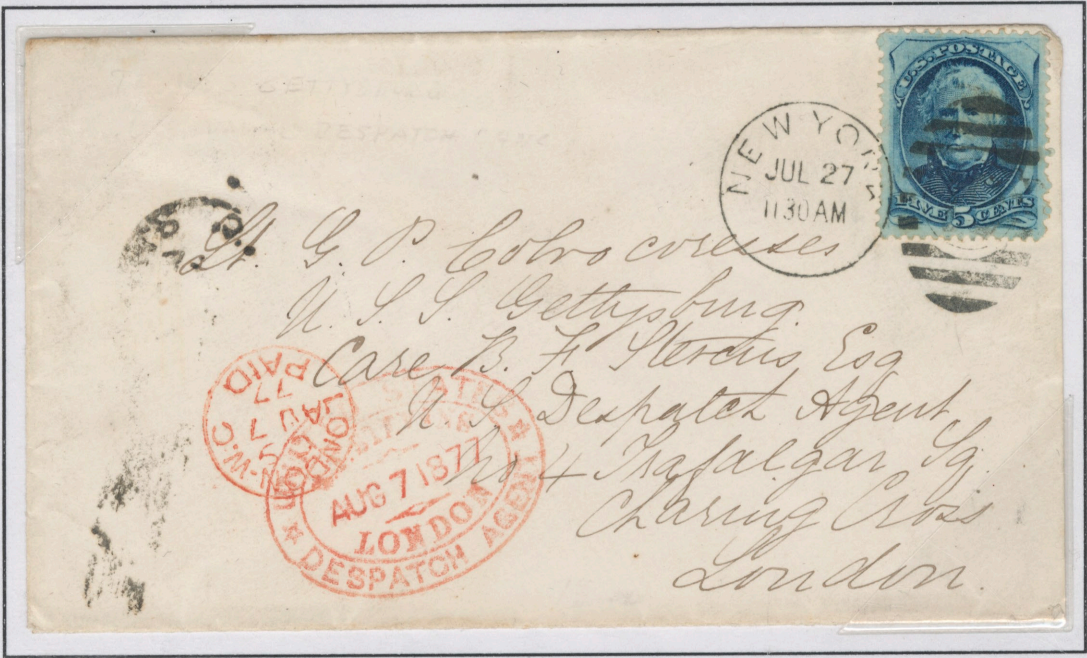 U.S. POSTAGE
FIVE 5 CENTS
NEW YORK
JUL 27
1130AM
Lt. G. P. Colvocoresses
U. S. S. Gettysburg.
Care B. F. Stevens, Esq
U. S. Despatch Agent
No 4 Trafalgar Sq
Charing Cross
London.
LONDON · N.W.C
AU 7
77
PAID
UNITED STATES
AUG 7 1877
LONDON
DESPATCH AGENT
DESPATCH